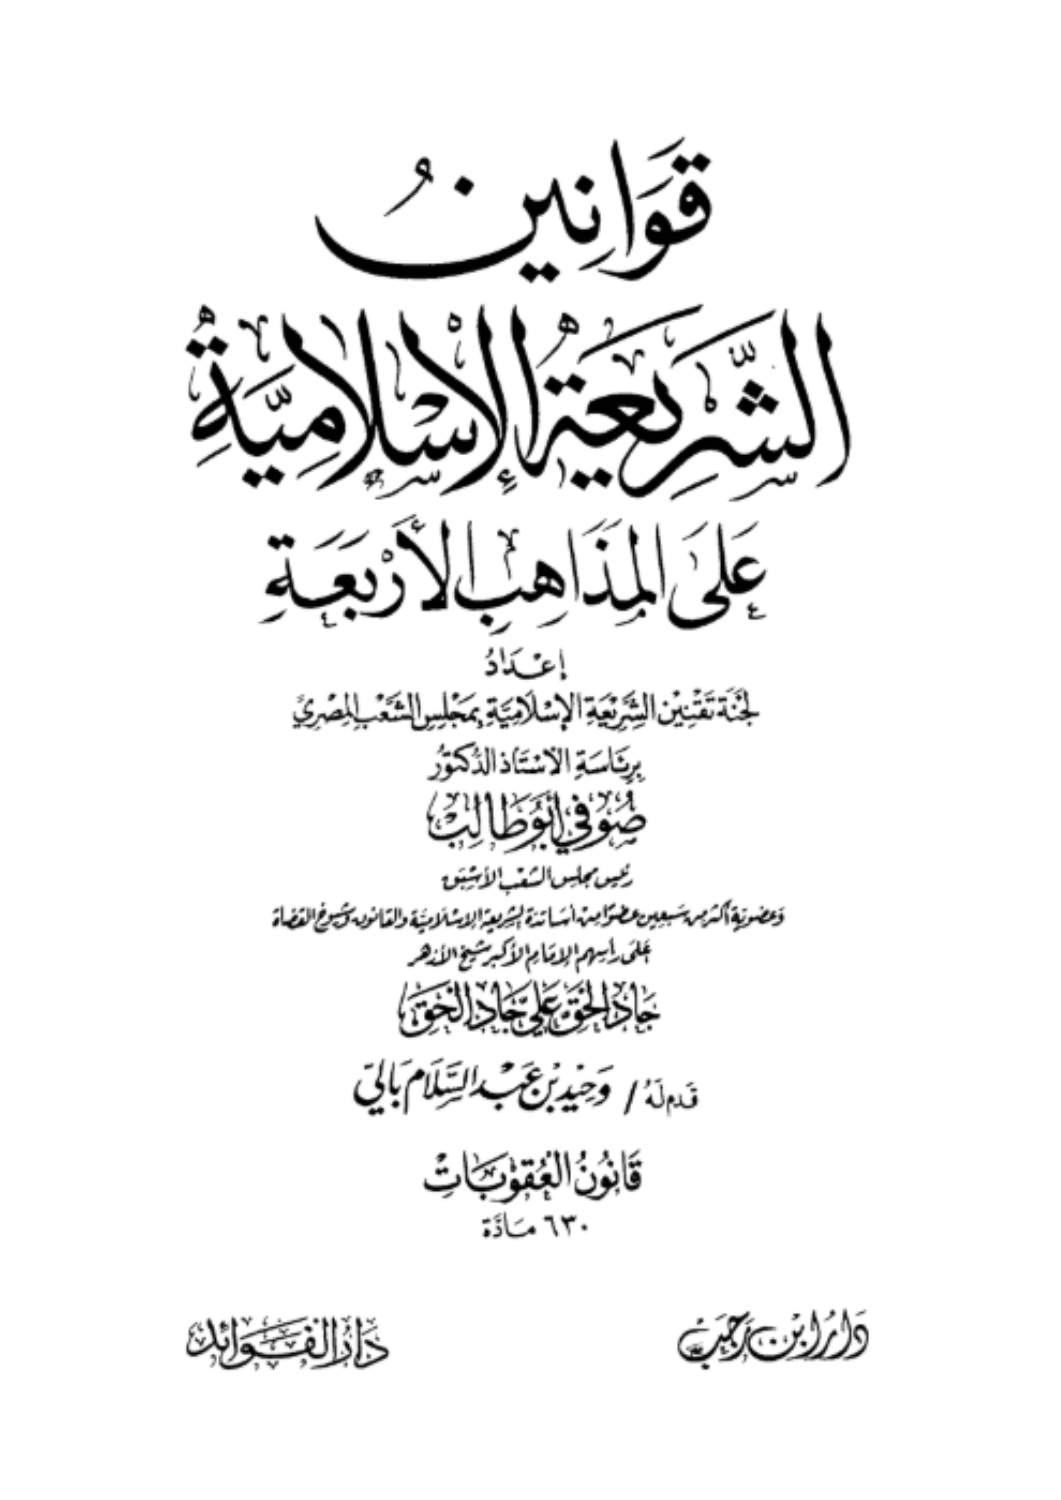 قَوَانِينُ
الشَّرِيعَةِ الإِسْلَامِيَّةِ
عَلَى المَذَاهِبِ الأَرْبَعَةِ
إِعْدَادُ
لَجْنَة تَقْنِيْنِ الشَّرِيْعَةِ الإِسْلَامِيَّةِ بِمَجْلِسِ الشَّعْبِ المِصْرِيِّ
بِرِئَاسَةِ الأسْتَاذ الدُّكْتُوْرُ
صُوْفِي أَبُوْ طَالِبْ
رئيس مجلس الشعْب الأسْبَق
وَعضويّة أكثر من سَبعين عضوًا مِنْ أسَاتذة الشريعة الإسْلاميَّة والقانون وشيوخ القضاة
عَلى رأسِهم الإمَام الأكبر شيخ الأزهر
جَاد الحَقّ عَلِيّ جَاد الحَقّ
قَدم لَهُ / وَحِيْد بْن عَبْد السَّلَام بَالِيّ
قَانُونُ العُقُوْبَاتِ
٦٣٠ مَادَّة
دَارُ ابْنِ رَجَبْ
دَارُ الفَوَائِد